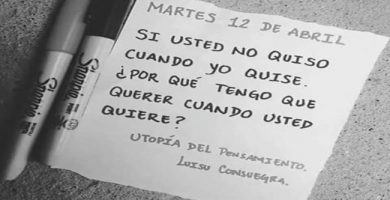 MARTES 12 DE ABRIL
SI USTED NO QUISO
CUANDO YO QUISE.
¿POR QUÉ TENGO QUE
QUERER CUANDO USTED
QUIERE?
UTOPÍA DEL PENSAMIENTO.
LUISU CONSUEGRA.
Sharpie
Sharpie